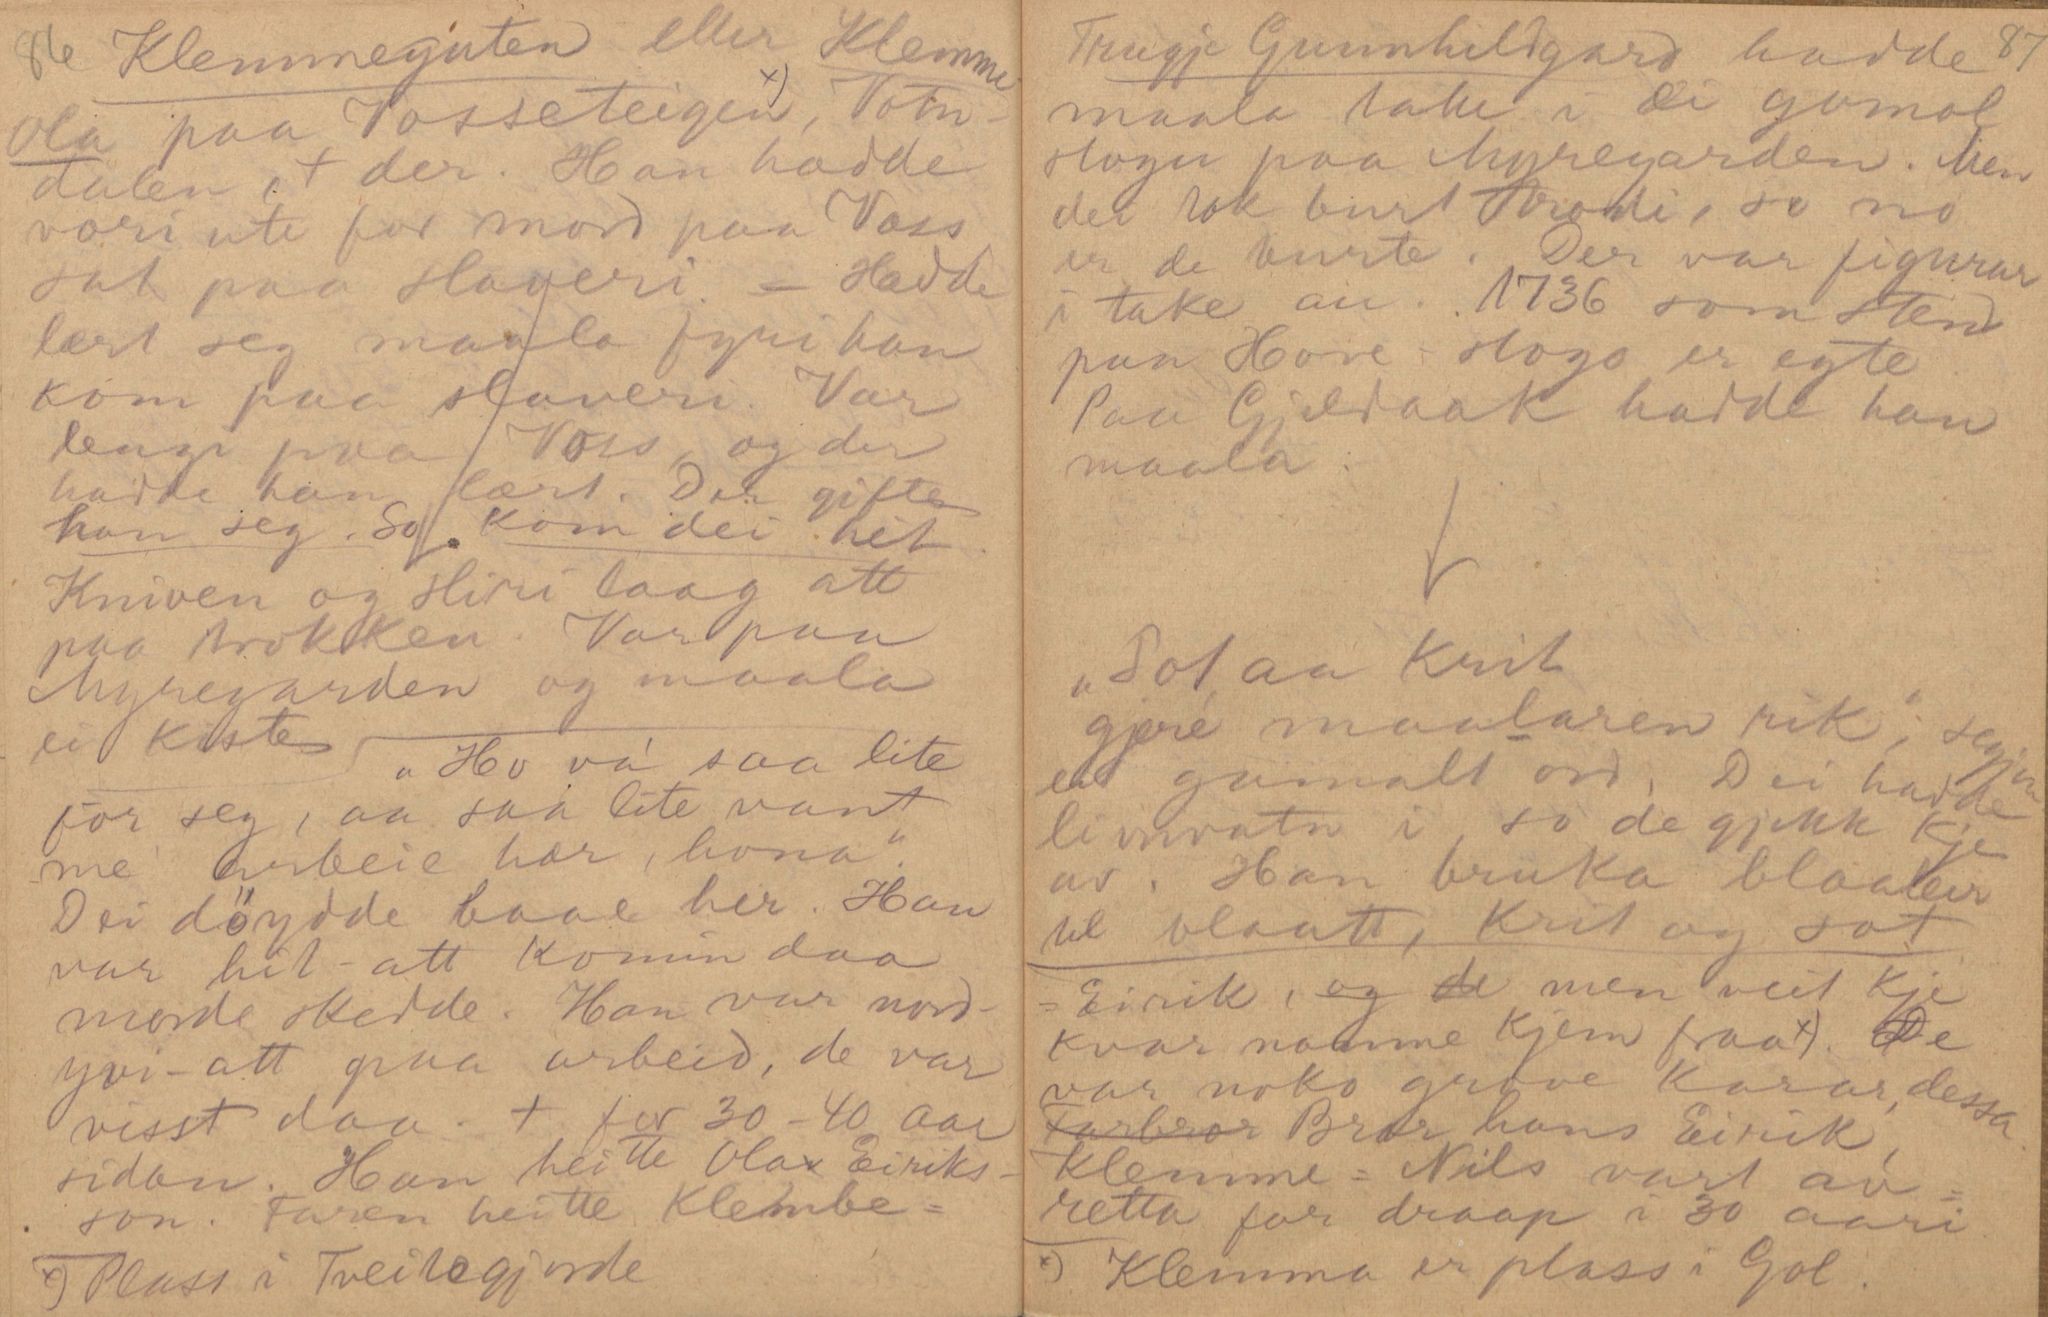 86 Klemmeguten eller Klemme
Ola paa Vosseteigen x), Votn-
dalen, + der. Han hadde
vori ute for mord paa Voss
sat paa slaveri. - Hadde
lært seg maala fyri han
kom paa slaveri. Var
lengi paa Voss, og der
hadde han lært. Der gifte
han seg. So kom dei hit.
Kniven og sliri laag att
paa brokken. Var paa
Myregarden og maala
ei kiste
„Ho va' saa lite
for seg, aa saa lite vant
me' arbeie hær, hona".
Dei döydde baae her. Han
var hit-att komin daa
morde skedde. Han var nord-
yvi-att paa arbeid, de var
visst daa. + for 30-40 aar
sidan. Han heitte Ola Eiriks-
son. Faren heitte Klembe=
x) Plass i Tveitegjorde
87
Trugje Gunnhildgard hadde
maala take i ei gomol
stogu paa Myregarden. Men
dei tok burt brodi, so no
er de burte. Der var figurar
i take au. 1736 som stend
paa Hove-stogo er egte
Paa Gjeldaak hadde han
maala.
„Sot aa Krit
gjere maalaren rik", segjer
eit gamalt ord. Dei hadde
limvatn i, so de gjekk kje
av. Han bruka blaaleir
til blaatt, Krit og sot
=Eirik, og de men veit kje
kvar namne kjem fraa x). De
var noko grove karar, dessa.
Farbror Bror hans Eirik,
Klemme=Nils vart av=
retta for draap i 30 aari
x) Klemma er plass i Gol.